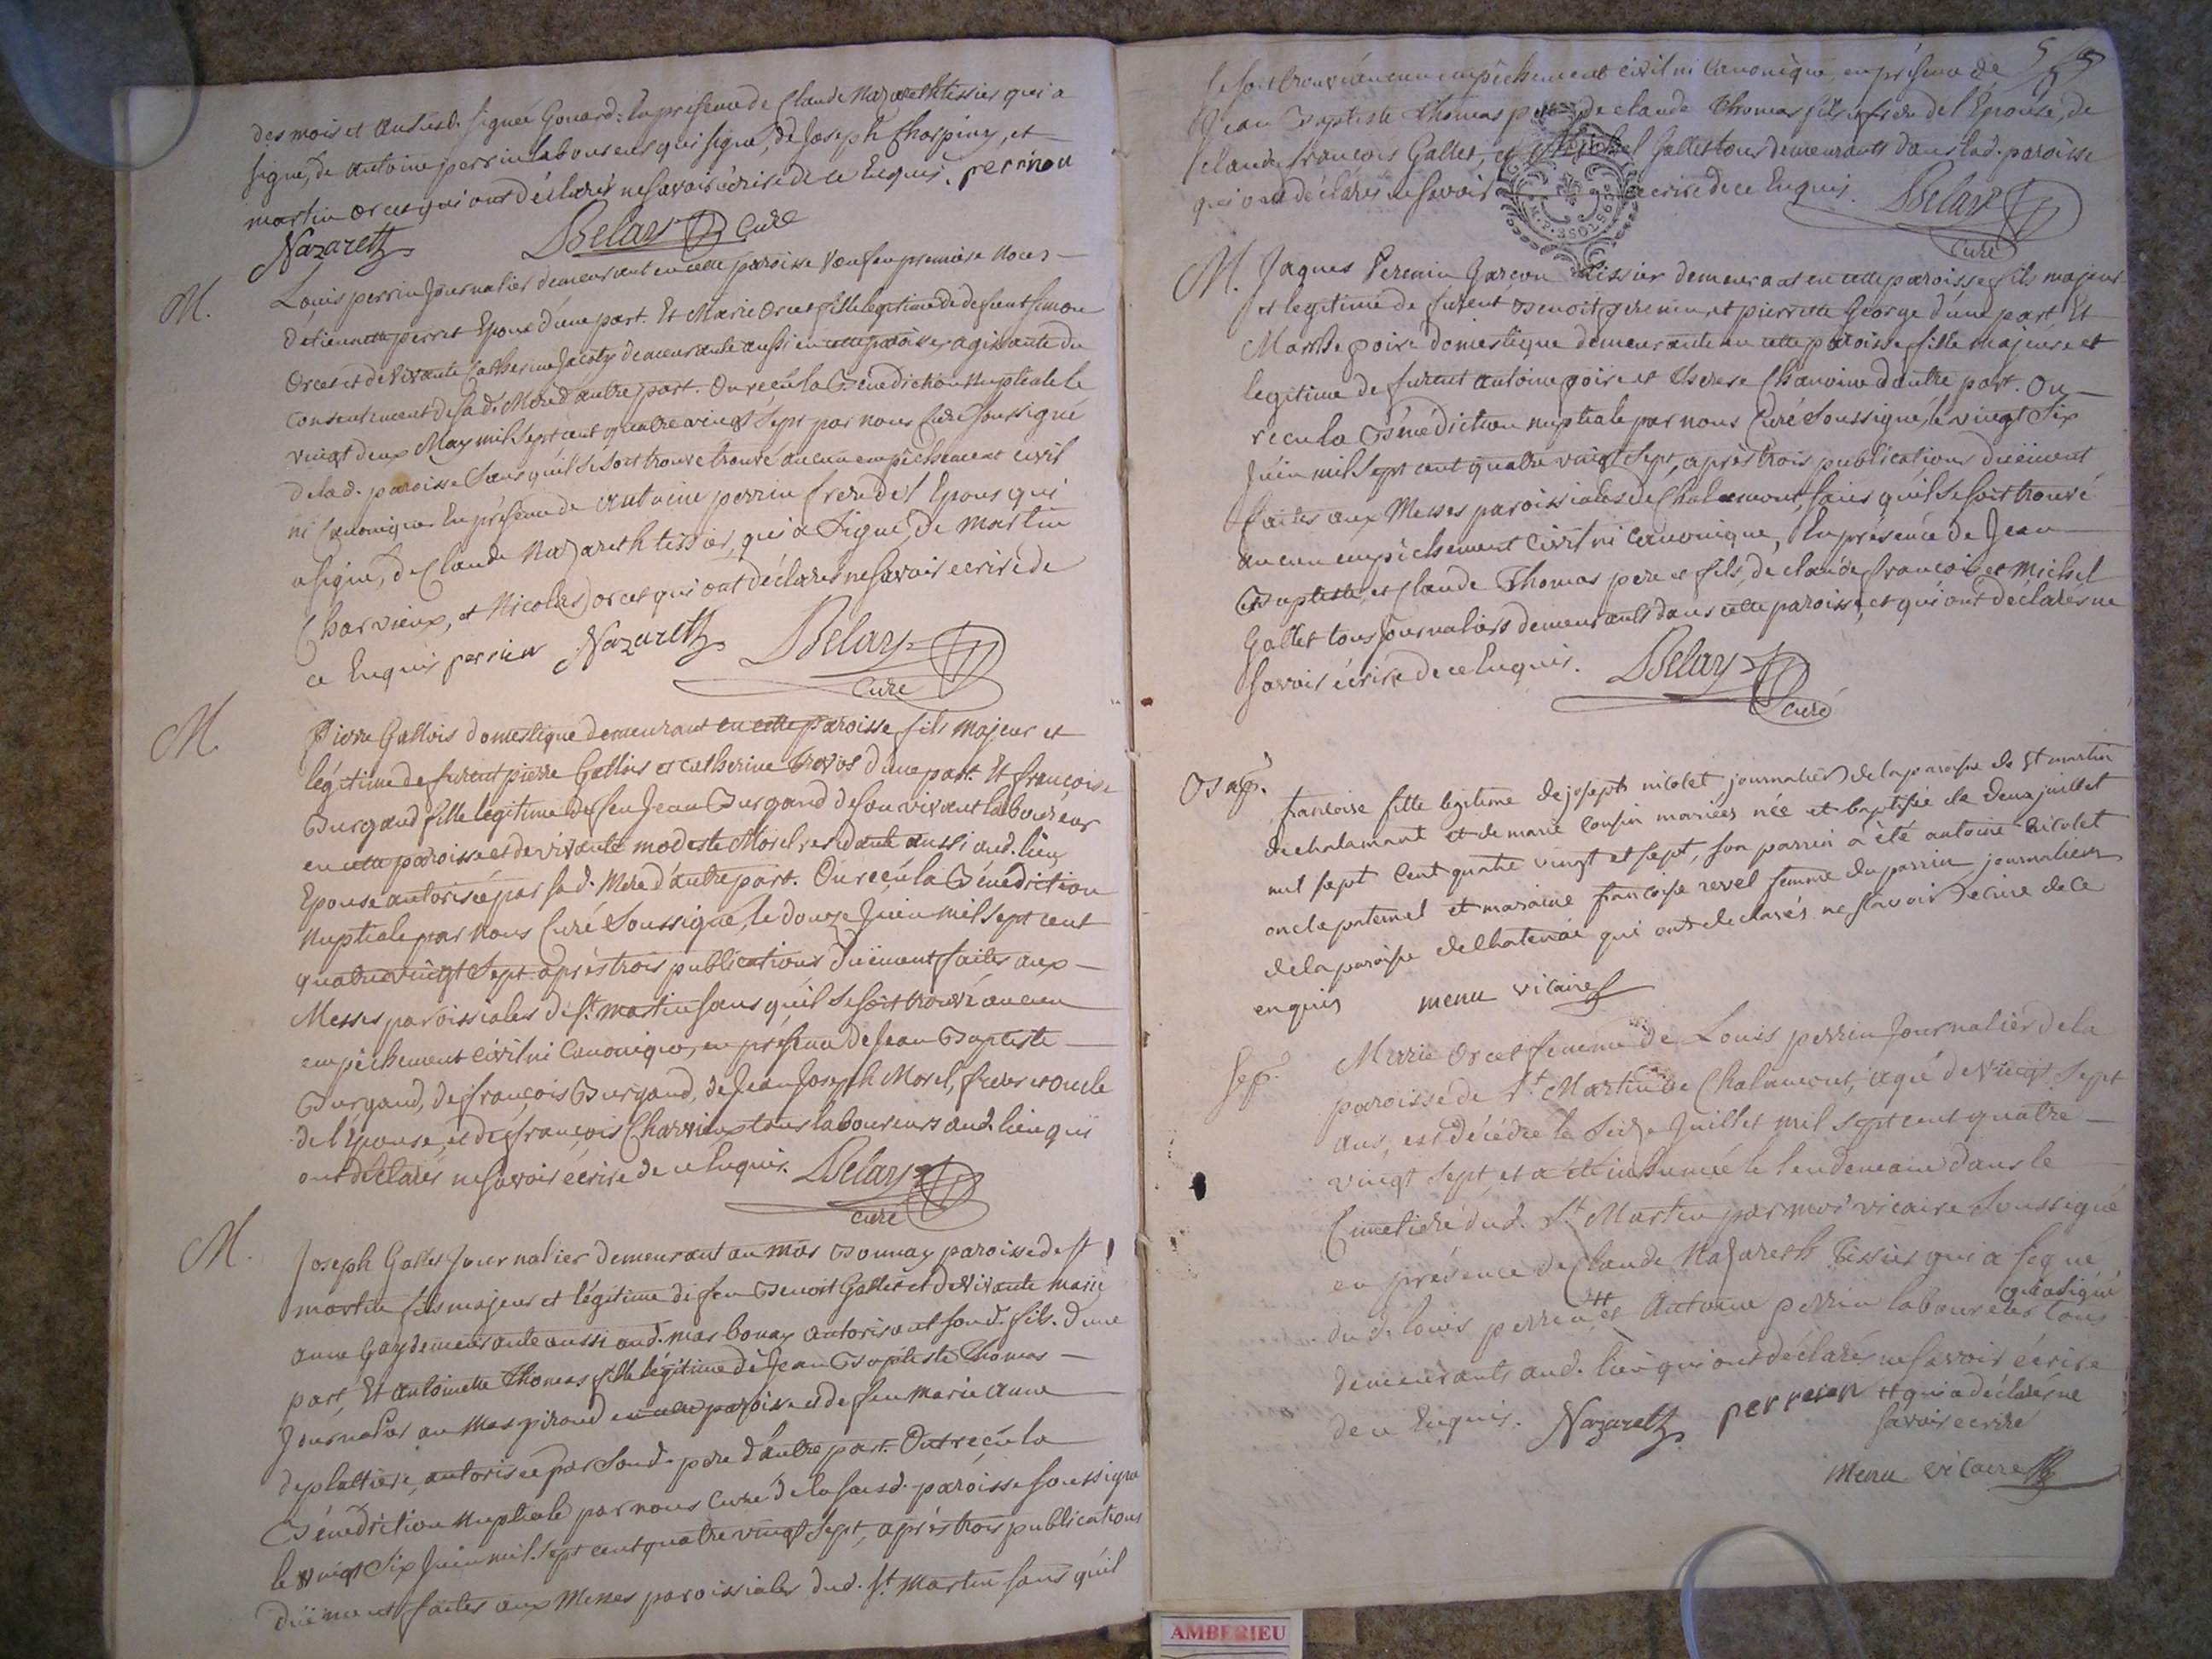 des mois et an susd. signée Gouard: En présence de Claude Nazareth tissier qui a
signé, de Antoine perrin laboureur qui signé, de Joseph Charpiny, et
martin orcet qui ont déclarés ne savoir écrire de ce Enquis. perrinon
Nazareth Belay Curé
M. Louis perrin Journalier demeurant en cette paroisse Veuf en premiere Noces
detiennette perret Epoux d'une part. Et Marie Orcet fille legitime de defunt simon
Orcet et de Vivante Catherine Jacoty demeurante aussi en cette paroisse agissante du
Consentement de sa d. Mere d'autre part. On reçu la Bénédiction Nuptiale le
vingt deux May mil Sept cent quatre vingt Sept par nous Curé Soussigné
de la d. paroisse Sans qu'il se soit trouvé trouvé aucun empêchement civil
ni Canonique En présence de Antoine perrin frere de l'Epoux qui
a signé, de Claude Nazareth tissier, qui a Signé, de Martin
Charvieux, et Nicolas orcet qui ont déclarés ne savoir ecrire de
ce Enquis perrien Nazareth Belay
Curé
M Pierre Gallois domestique demeurant en cette paroisse fils majeur et
légitime de furent pierre Gallois et catherine d'une part. Et françoise
Burgaud fille légitime de feu Jean Burgaud de son vivant laboureur
en cette paroisse et de vivante modeste Morel residante aussi aud. lieu
Epouse autorisée par sa d. Mere d'autre part. On reçu la Bénédiction
Nuptiale par Nous Curé Soussigné, le douze Juin mil Sept cent
quatre vingt Sept après trois publications düement faites aux
Messes paroissiales de St. Martin sans qu'il Se soit trouvé aucun
empêchement civil ni Canonique, en présence de Jean Baptiste
Burgaud, de françois Burgaud, de Jean Joseph Morel, freres et oncle
de l'Epouse, et de françois Charvieux tous laboureurs aud. lieu qui
ont déclarés ne savoir écrire de ce Enquis. Belay
Curé
M. Joseph Gallet Journalier demeurant au mas Bonnay paroisse de St
martin fils majeur et légitime de feu Benoit Gallet et de Vivante marie
anne Gay demeurante aussi aud. mas bonay autorisant son d. fils. d'une
part, Et Antoinette Thomas fille légitime de Jean Baptiste Thomas
Journalier au Mas piraud en cette paroisse et de feu Marie Anne
deplattiere, autorisée par son d. pere d'autre part. Ont reçu la
Bénédiction Nuptiale par nous curé de la susd. paroisse soussigné
le vingt Six Juin mil Sept cent quatre vingt Sept, après trois publications
düement faites aux Messes paroissiales dud. St. Martin sans qu'il
5
se soit trouvé aucun empêchement civil ni Canonique, en présence de
Jean Baptiste Thomas pere, de claude Thomas fils frere de l'Epouse, de
claude françois Gallet, et Michel Gallet tous demeurants dans lad. paroisse
qui ont déclarés ne savoir ecrire de ce Enquis. Belay
Curé
M. Jaques Perenin Garçon Tissier demeurant en cette paroisse fils majeur
et legitime de furent Benoit perenin, et pierrette George d'une part. Et
Marthe poire domestique demeurante en cette paroisse fille majeure et
legitime de furent Antoine poire et Therese Chanoine d'autre part. On
reçu la Bénédiction nuptiale par nous Curé Soussigné, le vingt Six
Juin mil Sept cent quatre vingt Sept, après trois publications düement
faites aux Messes paroissiales de Chalamont, sans qu'il se soit trouvé
aucun empêchement civil ni canonique, En présence de Jean
Baptiste, et Claude Thomas pere et fils, de claude françois et Michel
Gallet tous Journaliers demeurants dans cette paroisse, et qui ont déclarés ne
savoir écrire de ce Enquis. Belay
Curé
Bap. françoise fille légitime de joseph nicolet journalier de la paroisse de St martin
de chalamont et de marie cousin mariées née et baptisée le deux juillet
mil sept cent quatre vingt et sept, son parrin a été antoine nicolet
oncle paternel et maraine françoise revel femme du parrin journaliers
de la paroisse de Chatenai qui ont declarés ne scavoir ecrire de ce
enquis menu vicaire
Sep. Marie Orcet femme de Louis perrin Journalier de la
paroisse de St Martin de Chalamont, agée de vingt Sept
ans, est décédée le Seize Juillet mil Sept cent quatre
vingt Sept et a été inhumée le lendemain dans le
Cimetiere dud. St Martin par moi vicaire Soussigné
en présence de Claude Nazareth Tissier qui a signé
du d. Louis perrin et Antoine perrin laboureur qui a signé tous
demeurants aud. lieu qui ont déclarés ne savoir écrire
de ce Enquis. Nazareth perrien et qui a déclaré ne
savoir ecrire
Menu vicaire
AMBERIEU